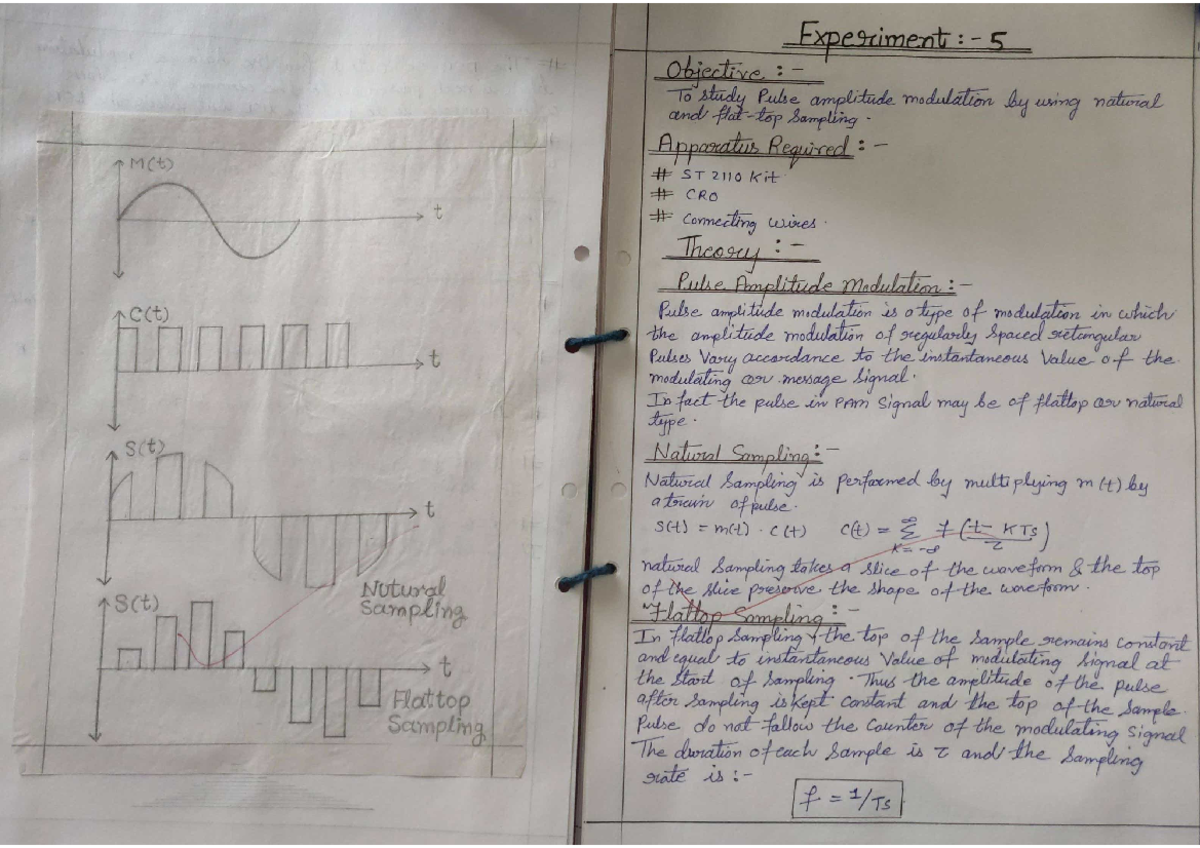 M(t)
t
C(t)
t
S(t)
t
Nutural
Sampling
S(t)
t
Flattop
Sampling
Experiment :- 5
Objective :-
To study Pulse amplitude modulation by using natural
and flat-top Sampling.
Apparatus Required :-
# ST 2110 Kit
# CRO
# Connecting wires.
Theory :-
Pulse Amplitude Modulation :-
Pulse amplitude modulation is a type of modulation in which
the amplitude modulation of regularly spaced retangular
Pulses Vary accordance to the instantaneous Value of the
modulating or message signal.
In fact the pulse in PAM Signal may be of flattop or natural
type.
Natural Sampling :-
Natural Sampling is performed by multiplying m(t) by
a train of pulse.
S(t) = m(t) . C(t)   C(t) = ∞ Σ K=-∞ (t- KTs)/τ
natural Sampling takes a slice of the waveform & the top
of the slice preserve the shape of the waveform.
Flattop Sampling :-
In flattop Sampling, the top of the Sample remains constant
and equal to instantaneous Value of modulating Signal at
the Start of Sampling. Thus the amplitude of the pulse
after Sampling is kept Constant and the top of the Sample
Pulse do not follow the Counter of the modulating Signal
The duration of each Sample is τ and the Sampling
rate is :-
f = 1/Ts